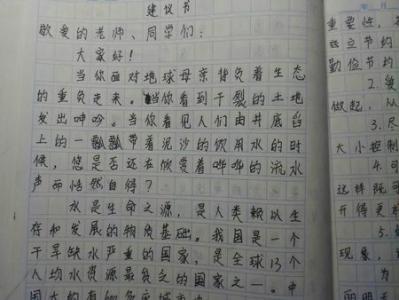 建议书
敬爱的老师、同学们：
大家好！
当你面对地球母亲背负着生态
的重负走来。当你看到干裂的土地
发出呻吟。当你看见人们由井底舀
上的一瓢瓢带着泥沙的饮用水的时
候，您是否还在欣爱着哗哗的流水
声而怡然自得？
水是生命之源，是人类赖以生
存和发展的物质基础。我国是一个
干旱缺水严重的国家，是全球13个
人均水资源最贫乏的国家之一。中
年 月
重要性，
立节约
勤俭节约
2.
做起，从
3.尽
大小控制
4.可
这样既可
开得更
5.
现象，
为